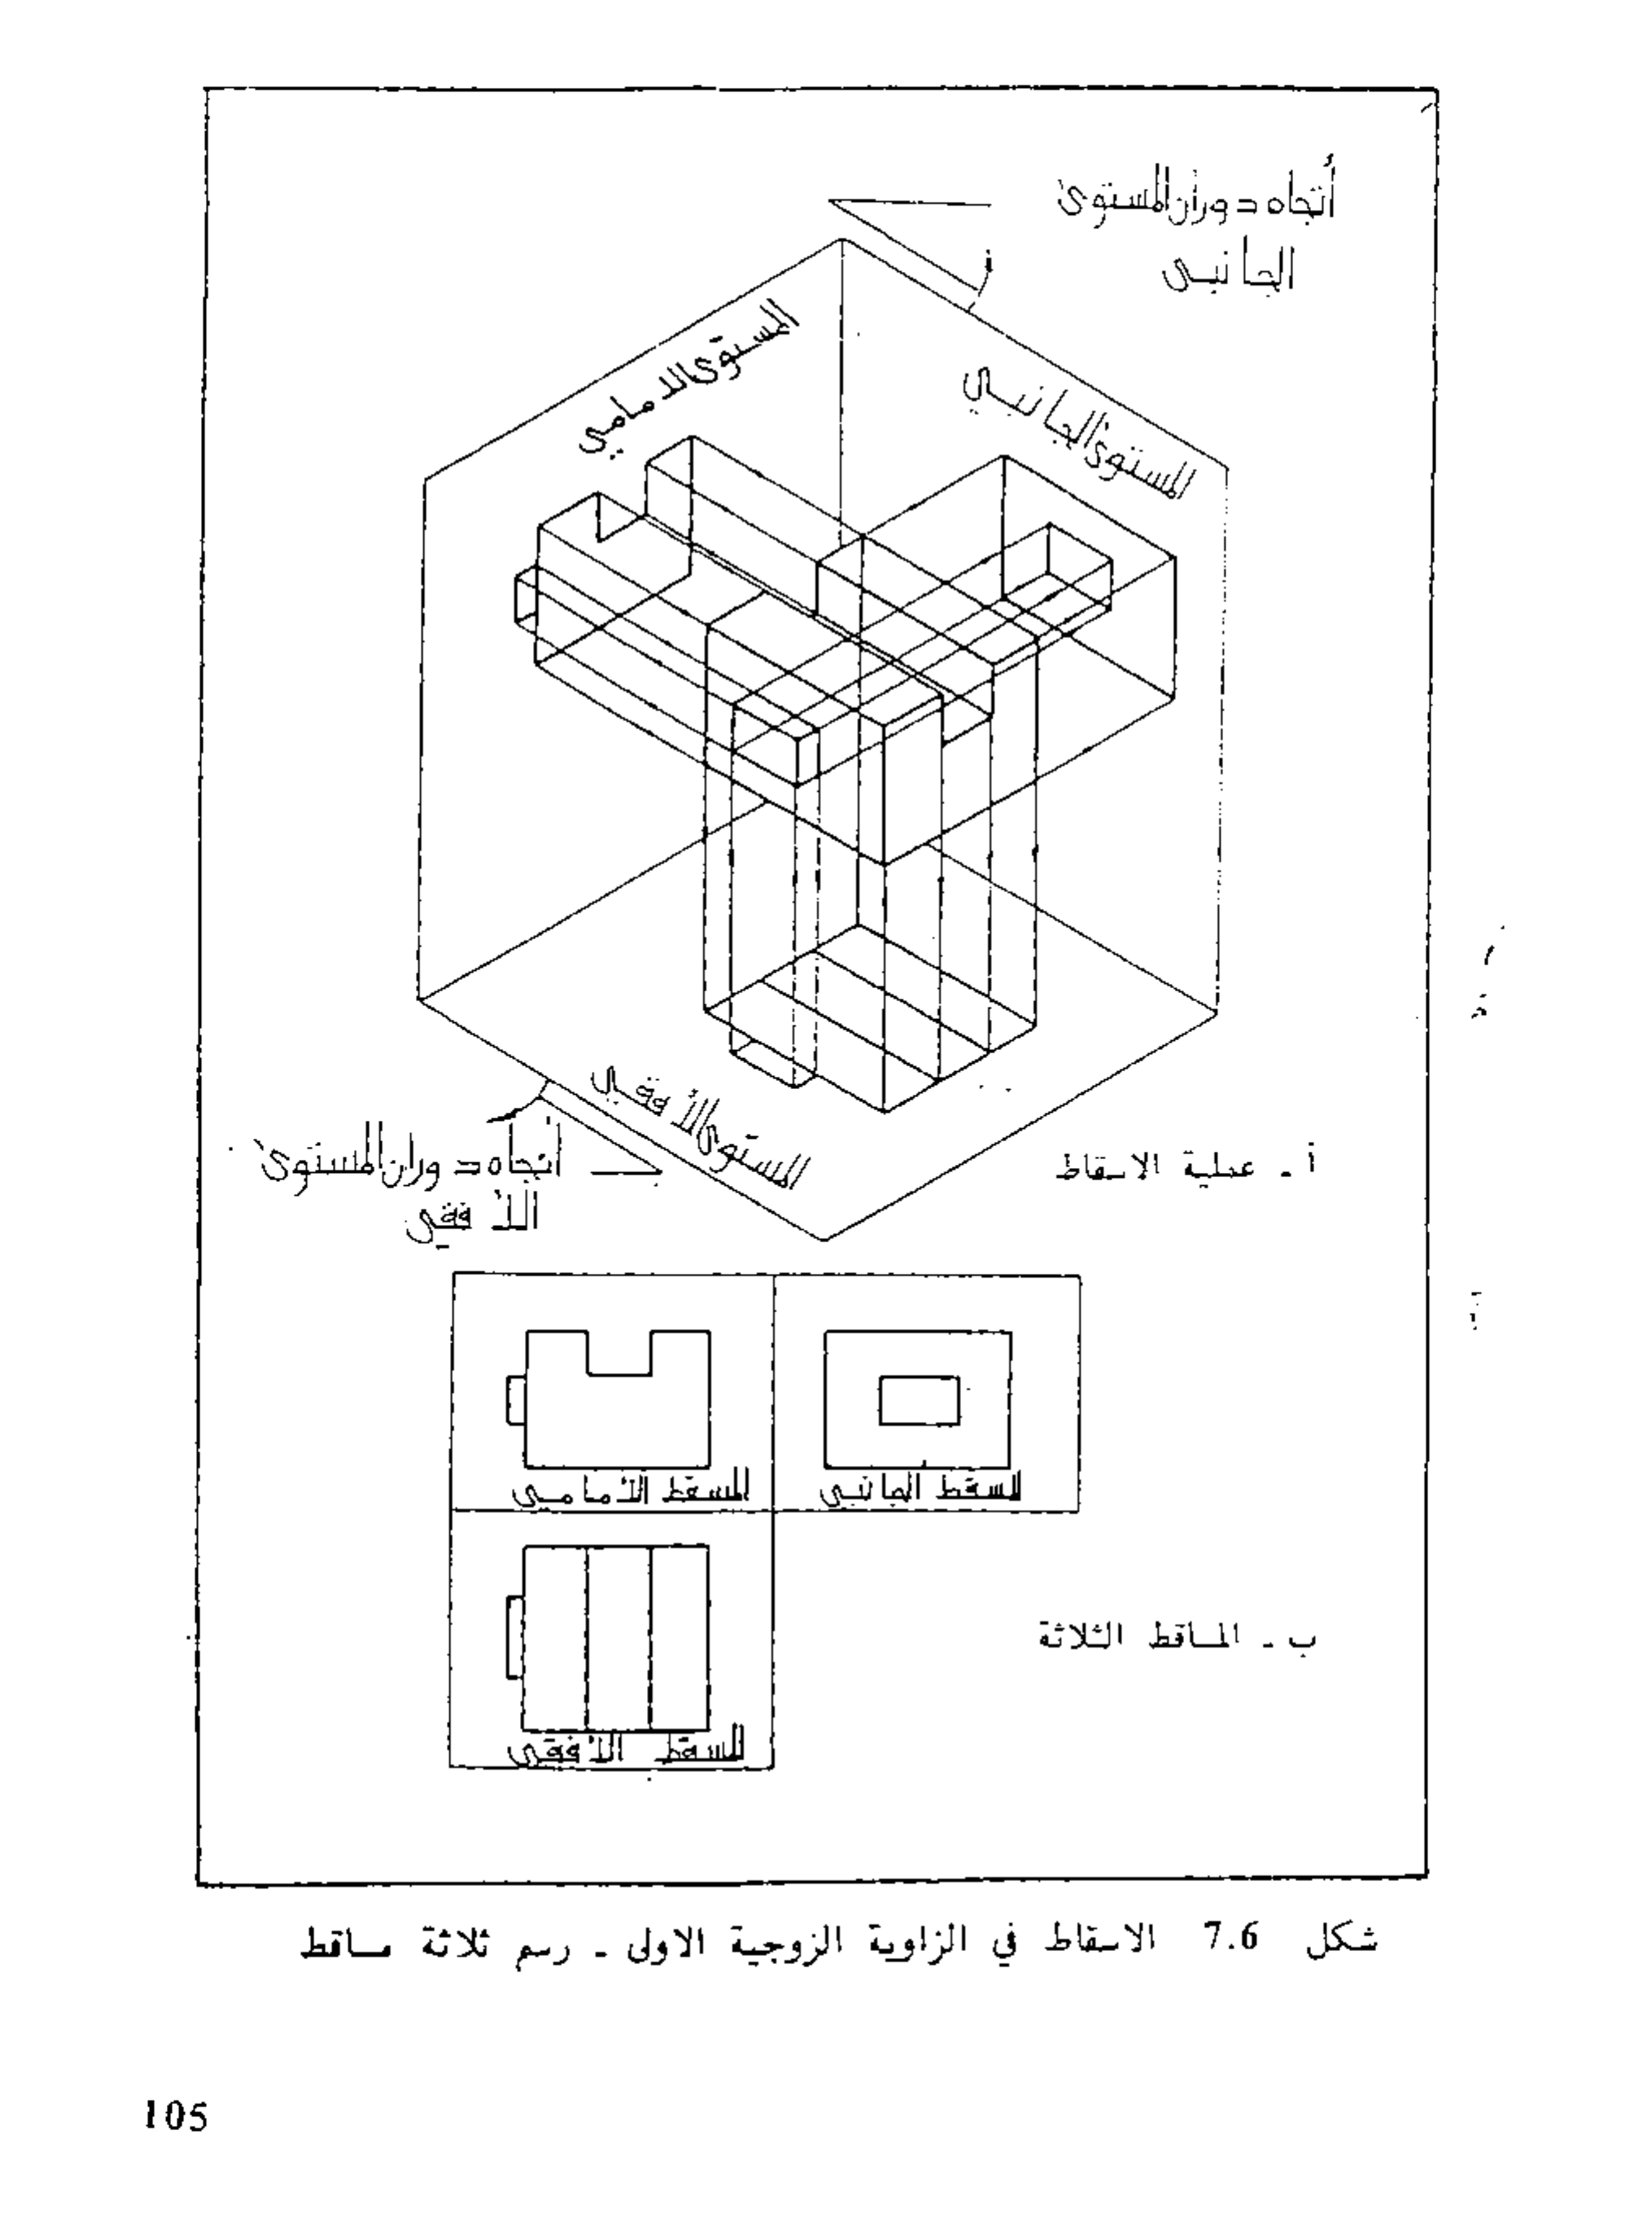 أتجاه دوران المستوى
الجانبي
المستوى الامامي
المستوى الجانبي
المستوى الأفقي
أتجاه دوران المستوى
الأفقي
أ - عملية الاسقاط
المسقط الأمامي
المسقط الجانبي
ب - المساقط الثلاثة
المسقط الأفقي
شكل 7.6 الاسقاط في الزاوية الزوجية الاولى - رسم ثلاثة مساقط
105